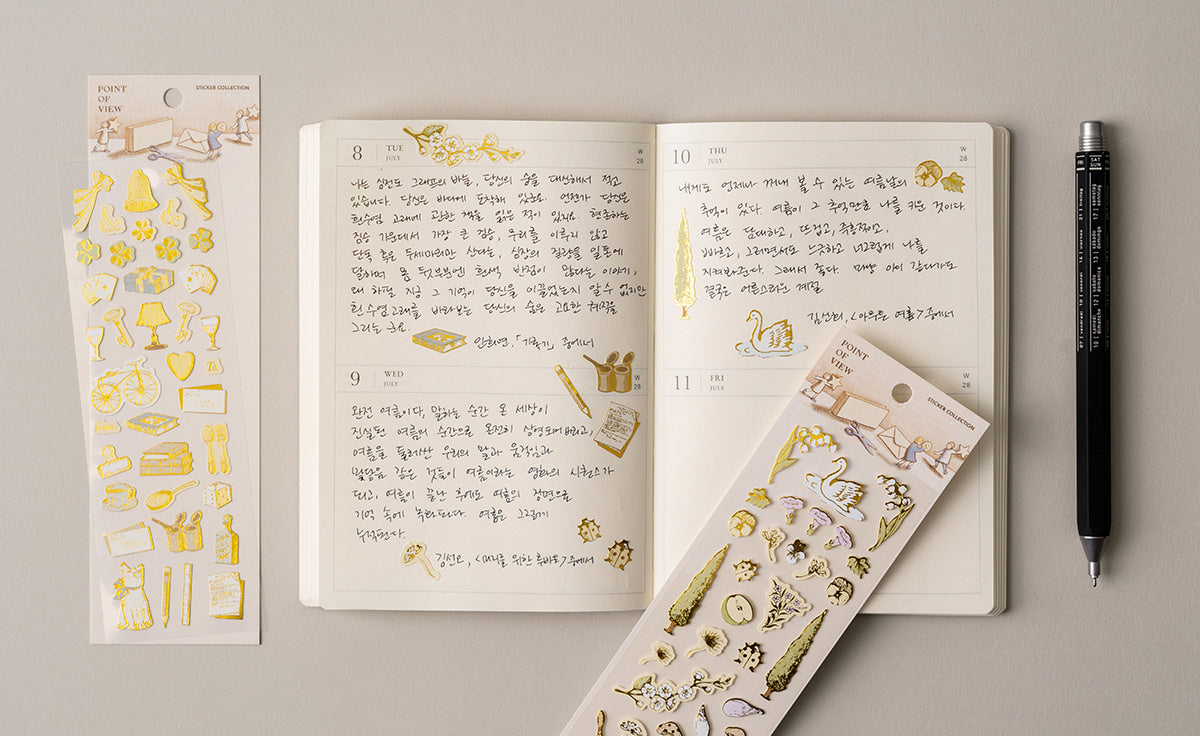 POINT
OF
VIEW
STICKER COLLECTION
8 TUE
JULY
W
28
나는 심전도 그래프의 바늘, 당신의 숨을 대신해서 적고
있습니다. 당신은 바다에 도착해 있군요. 언젠가 당신은
흰수염 고래에 관한 책을 읽은 적이 있지요. 현존하는
짐승 가운데서 가장 큰 짐승, 무리를 이루지 않고
단독 혹은 두세마리만 산다는, 심장의 길이 일톤에
달하며 몸 뒷부분엔 흰색 반점이 많다는 이야기,
왜 하필 지금 그 기억이 당신을 이끌었는지 알 수 없지만
흰수염고래를 바라보는 당신의 숨은 고요한
그리는 군요.
안희연,「기록기」중에서
9 WED
JULY
W
28
완전 여름이다, 말하는 순간 온 세상이
진실된 여름의 순간으로 온전히 상영되어버리고,
여름을 둘러싼 우리의 말과 움직임과
맞닿음 같은 것들이 여름이라는 영화의 시퀀스가
되고, 여름이 끝난 후에도 여름의 장면으로
기억 속에 녹화된다. 여름은 그렇게
누적된다.
김선오, <미래를 위한 루바토> 중에서
10 THU
JULY
W
28
내게도 언제나 꺼내 볼 수 있는 여름날의
추억이 있다. 여름이 그 추억만큼 나를 키운 것이다.
여름은 담대하고, 뜨겁고, 즉흥적이고,
빠르고, 그러면서도 느긋하고 너그럽게 나를
지켜봐준다. 그래서 좋다. 마냥 아이 같다가도
결국은 어른스러운 계절
김신회, <아무튼 여름> 중에서
11 FRI
JULY
W
28
POINT
OF
VIEW
STICKER COLLECTION
FRI
SAT
SUN